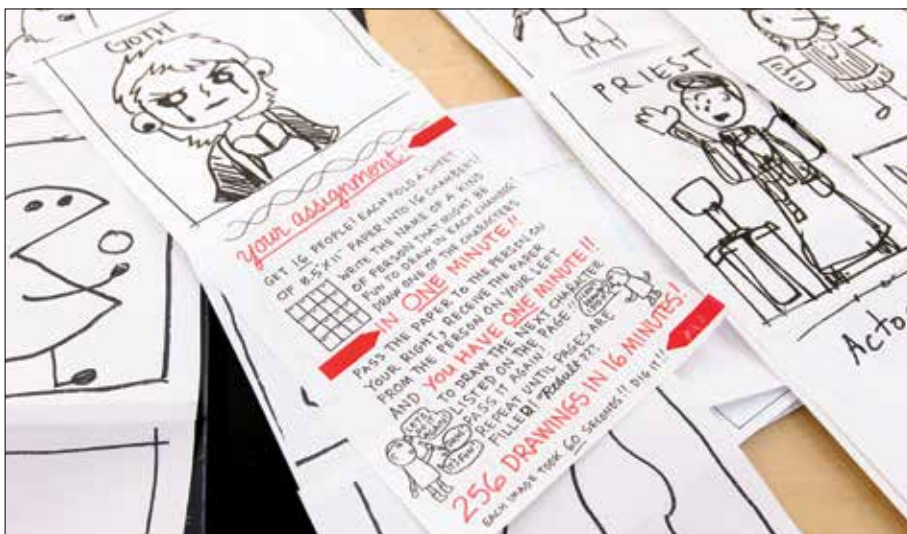 GOTH
your assignment
GET 16 PEOPLE! EACH FOLD A SHEET
OF 8.5X11" PAPER INTO 16 CHAMBERS!
WRITE THE NAME OF A KIND
OF PERSON THAT MIGHT BE
FUN TO DRAW IN EACH CHAMBER!
DRAW ONE OF THE CHARACTERS
IN ONE MINUTE!!
PASS THE PAPER TO THE PERSON ON
YOUR RIGHT, RECEIVE THE PAPER
FROM THE PERSON ON YOUR LEFT
AND YOU HAVE ONE MINUTE!!
TO DRAW THE NEXT CHARACTER
LISTED ON THE PAGE
PASS IT AGAIN!
REPEAT UNTIL PAGES ARE
FILLED! Result???
256 DRAWINGS IN 16 MINUTES!
EACH IMAGE TOOK 60 SECONDS!! DIG IT!!
PRIEST
Acto